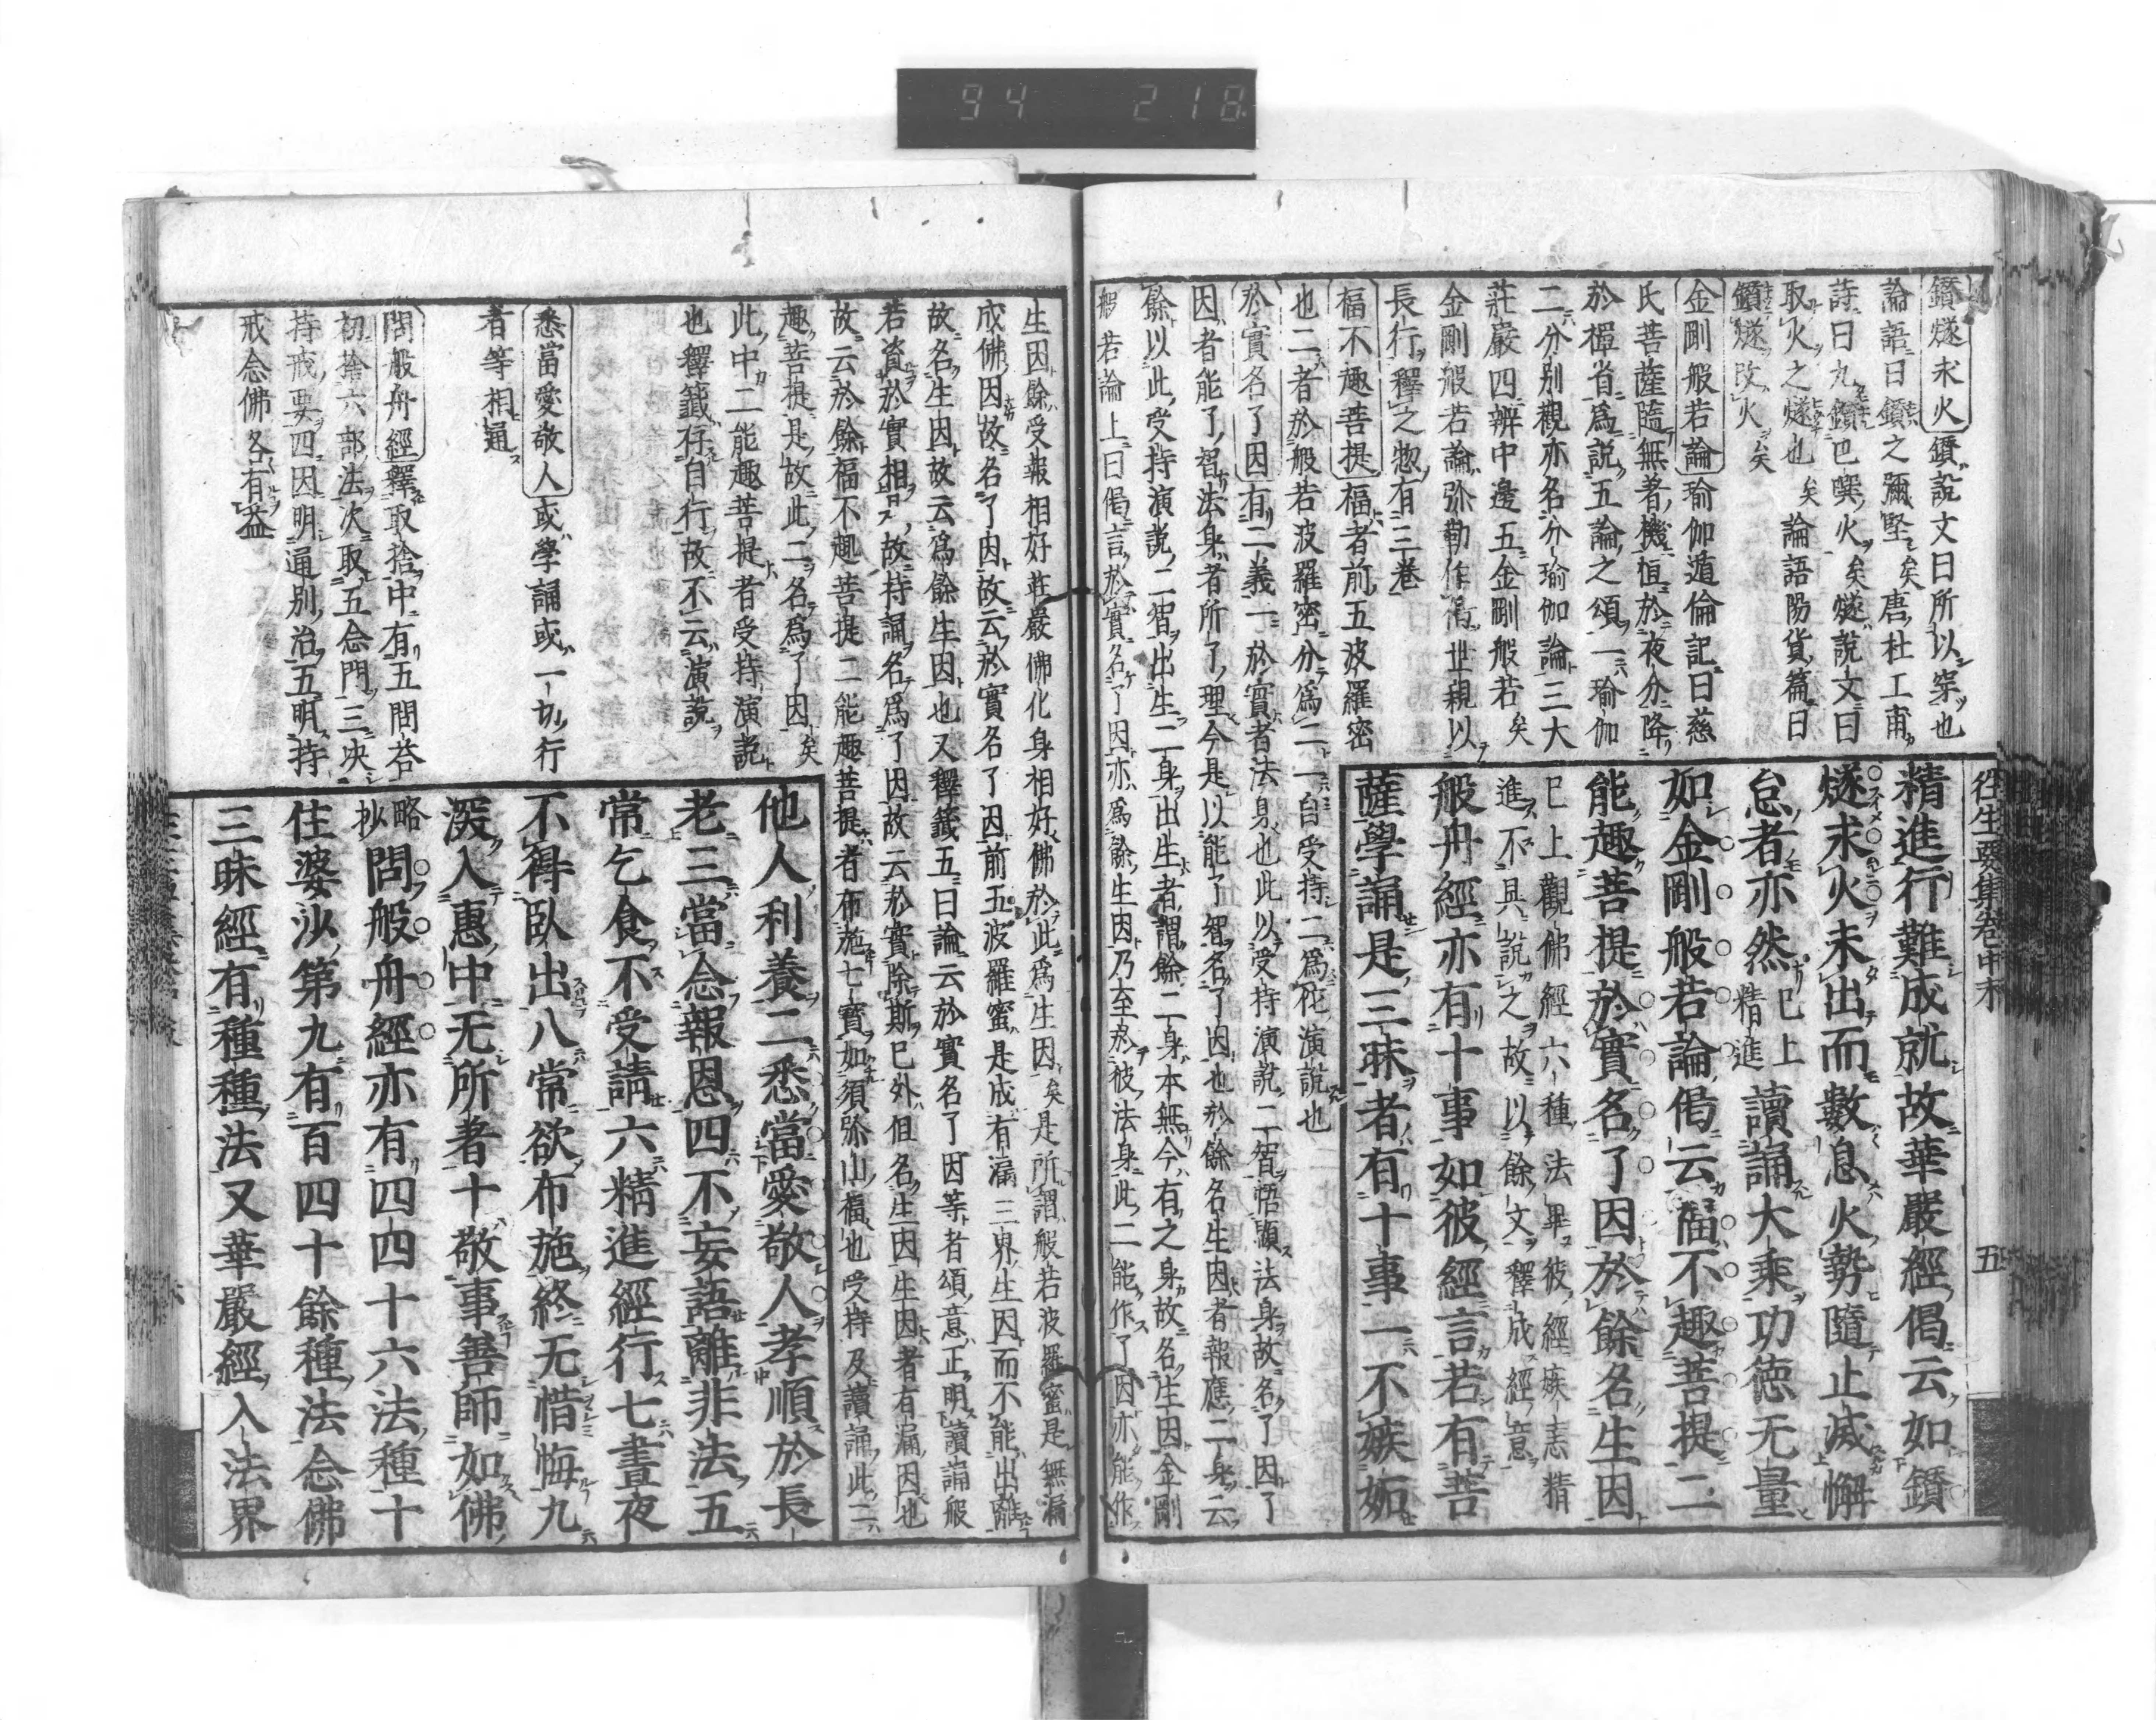 94 218
鑽燧求火鑽説文曰所以穿也
論語曰鑽之彌堅矣唐杜工甫
詩曰九鑽巴噀火矣燧説文曰
取火之燧也矣論語陽貨篇曰
鑽燧改火矣
金剛般若論瑜伽遁倫記曰慈
氏菩薩隨無著機恒於夜分降
於禪省爲説五論之頌一瑜伽
二分別觀亦名分瑜伽論三大
莊嚴四辨中邊五金剛般若矣
金剛般若論弥勒作偈世親以
長行釋之惣有三卷
福不趣菩提福者前五波羅密
也二者於般若波羅密分爲二一自受持二爲他演説也
於實名了因有二義一於實者法身也此以受持演説二智悟顯法身故名了因了
因者能了智法身者所了理今是以能了智名了因也於餘名生因者報應二身云
餘以此受持演説二智出生二身出生者謂餘二身本無今有之身故名生因金剛
般若論上曰偈言於實名了因亦爲餘生因乃至於彼法身此二能作了因亦能作
往生要集卷中末 五
精進行難成就故華嚴經偈云如鑽
燧求火未出而數息火勢隨止滅懈
怠者亦然已上精進讀誦大乘功德无量
如金剛般若論偈云福不趣菩提二
能趣菩提於實名了因於餘名生因
已上觀佛經六種法畢彼經嫉恚精
進不具説之故以餘文釋成經意
般舟經亦有十事如彼經言若有菩
薩學誦是三昧者有十事一不嫉妬
生因餘受報相好莊嚴佛化身相好佛於此爲生因矣是所謂般若波羅蜜是無漏
成佛因故名了因故云於實名了因前五波羅蜜是成有漏三界生因而不能出離
故名生因故云爲餘生因也又釋籤五曰論云於實名了因等者頌意正明讀誦般
若資於實相故持誦名爲了因故云於實除斯已外但名生因生因者有漏因也
故云於餘福不趣菩提二能趣菩提者布施七寶如須弥山福也受持及讀誦此二
趣菩提是故此二名爲了因矣
此中二能趣菩提者受持演説
也釋籤存自行故不云演説
悉當愛敬人或學誦或一切行
者等相通
問般舟經釋取捨中有五問荅
初捨六部法次取五念門三决
持戒要四因明通別治五明持
戒念佛各有益
他人利養二悉當愛敬人孝順於長
老三當念報恩四不妄語離非法五
常乞食不受請六精進經行七晝夜
不得臥出八常欲布施終无惜悔九
深入惠中无所著十敬事善師如佛
略抄問般舟經亦有四四十六法種十
住婆沙第九有百四十餘種法念佛
三昧經有種種法又華嚴經入法界